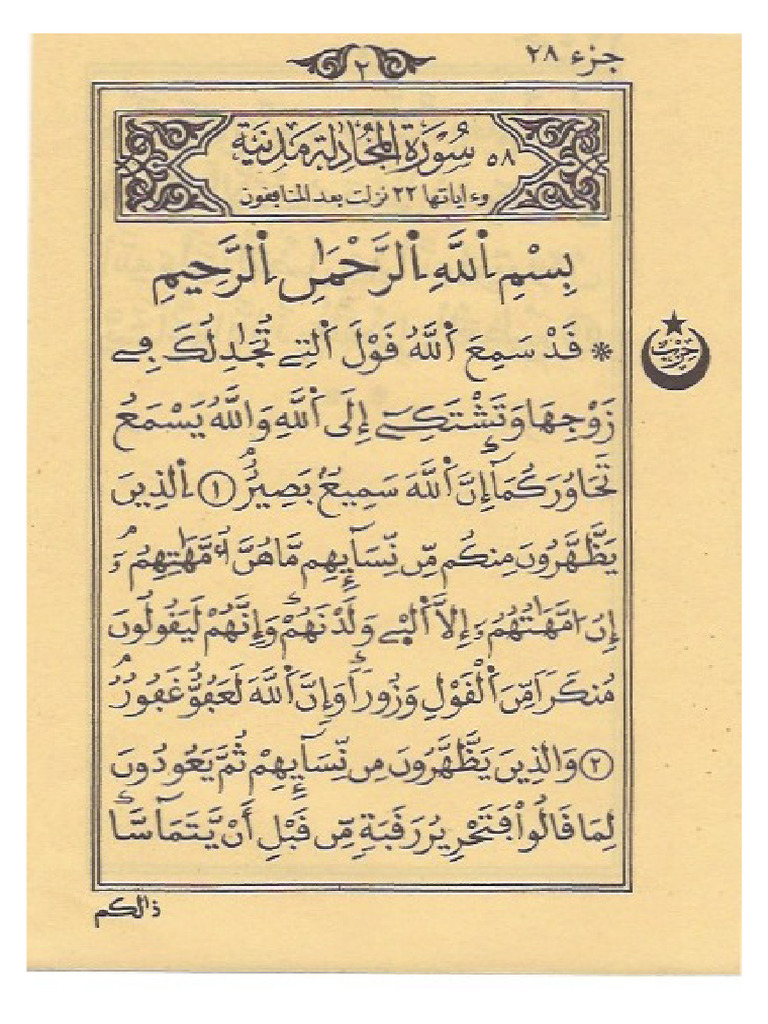 جزء ٢٨
٢
٥٨ سُورَةُ الْمُجَادِلَةِ مَدَنِيَّة
وءاياتها ٢٢ نزلت بعد المنافقون
بِسْمِ اِ۬للَّهِ اِ۬لرَّحْمَٰنِ اِ۬لرَّحِيمِ
* قَدْ سَمِعَ اَ۬للَّهُ قَوْلَ اَ۬لتِے تُجَٰدِلُكَ فِے
حِزْب
زَوْجِهَا وَتَشْتَكِےٓ إِلَى اَ۬للَّهِ وَاللَّهُ يَسْمَعُ
تَحَاوُرَكُمَآ إِنَّ اَ۬للَّهَ سَمِيعٌۢ بَصِيرٌ ١ اِ۬لذِينَ
يَظَّهَّرُونَ مِنكُم مِّن نِّسَآئِهِم مَّا هُنَّ أُمَّهَٰتِهِمُۥٓ
إِنُ امَّهَٰتُهُمُۥٓ إِلَّا اَ۬لَّٰٓـِٔے وَلَدْنَهُمْ وَإِنَّهُمْ لَيَقُولُونَ
مُنكَراٗ مِّنَ اَ۬لْقَوْلِ وَزُوراٗ وَإِنَّ اَ۬للَّهَ لَعَفُوٌّ غَفُورٌ
٢ وَالذِينَ يَظَّهَّرُونَ مِن نِّسَآئِهِمْ ثُمَّ يَعُودُونَ
لِمَا قَالُواْ فَتَحْرِيرُ رَقَبَةٖ مِّن قَبْلِ أَنْ يَّتَمَآسَّا
ذَٰلكم